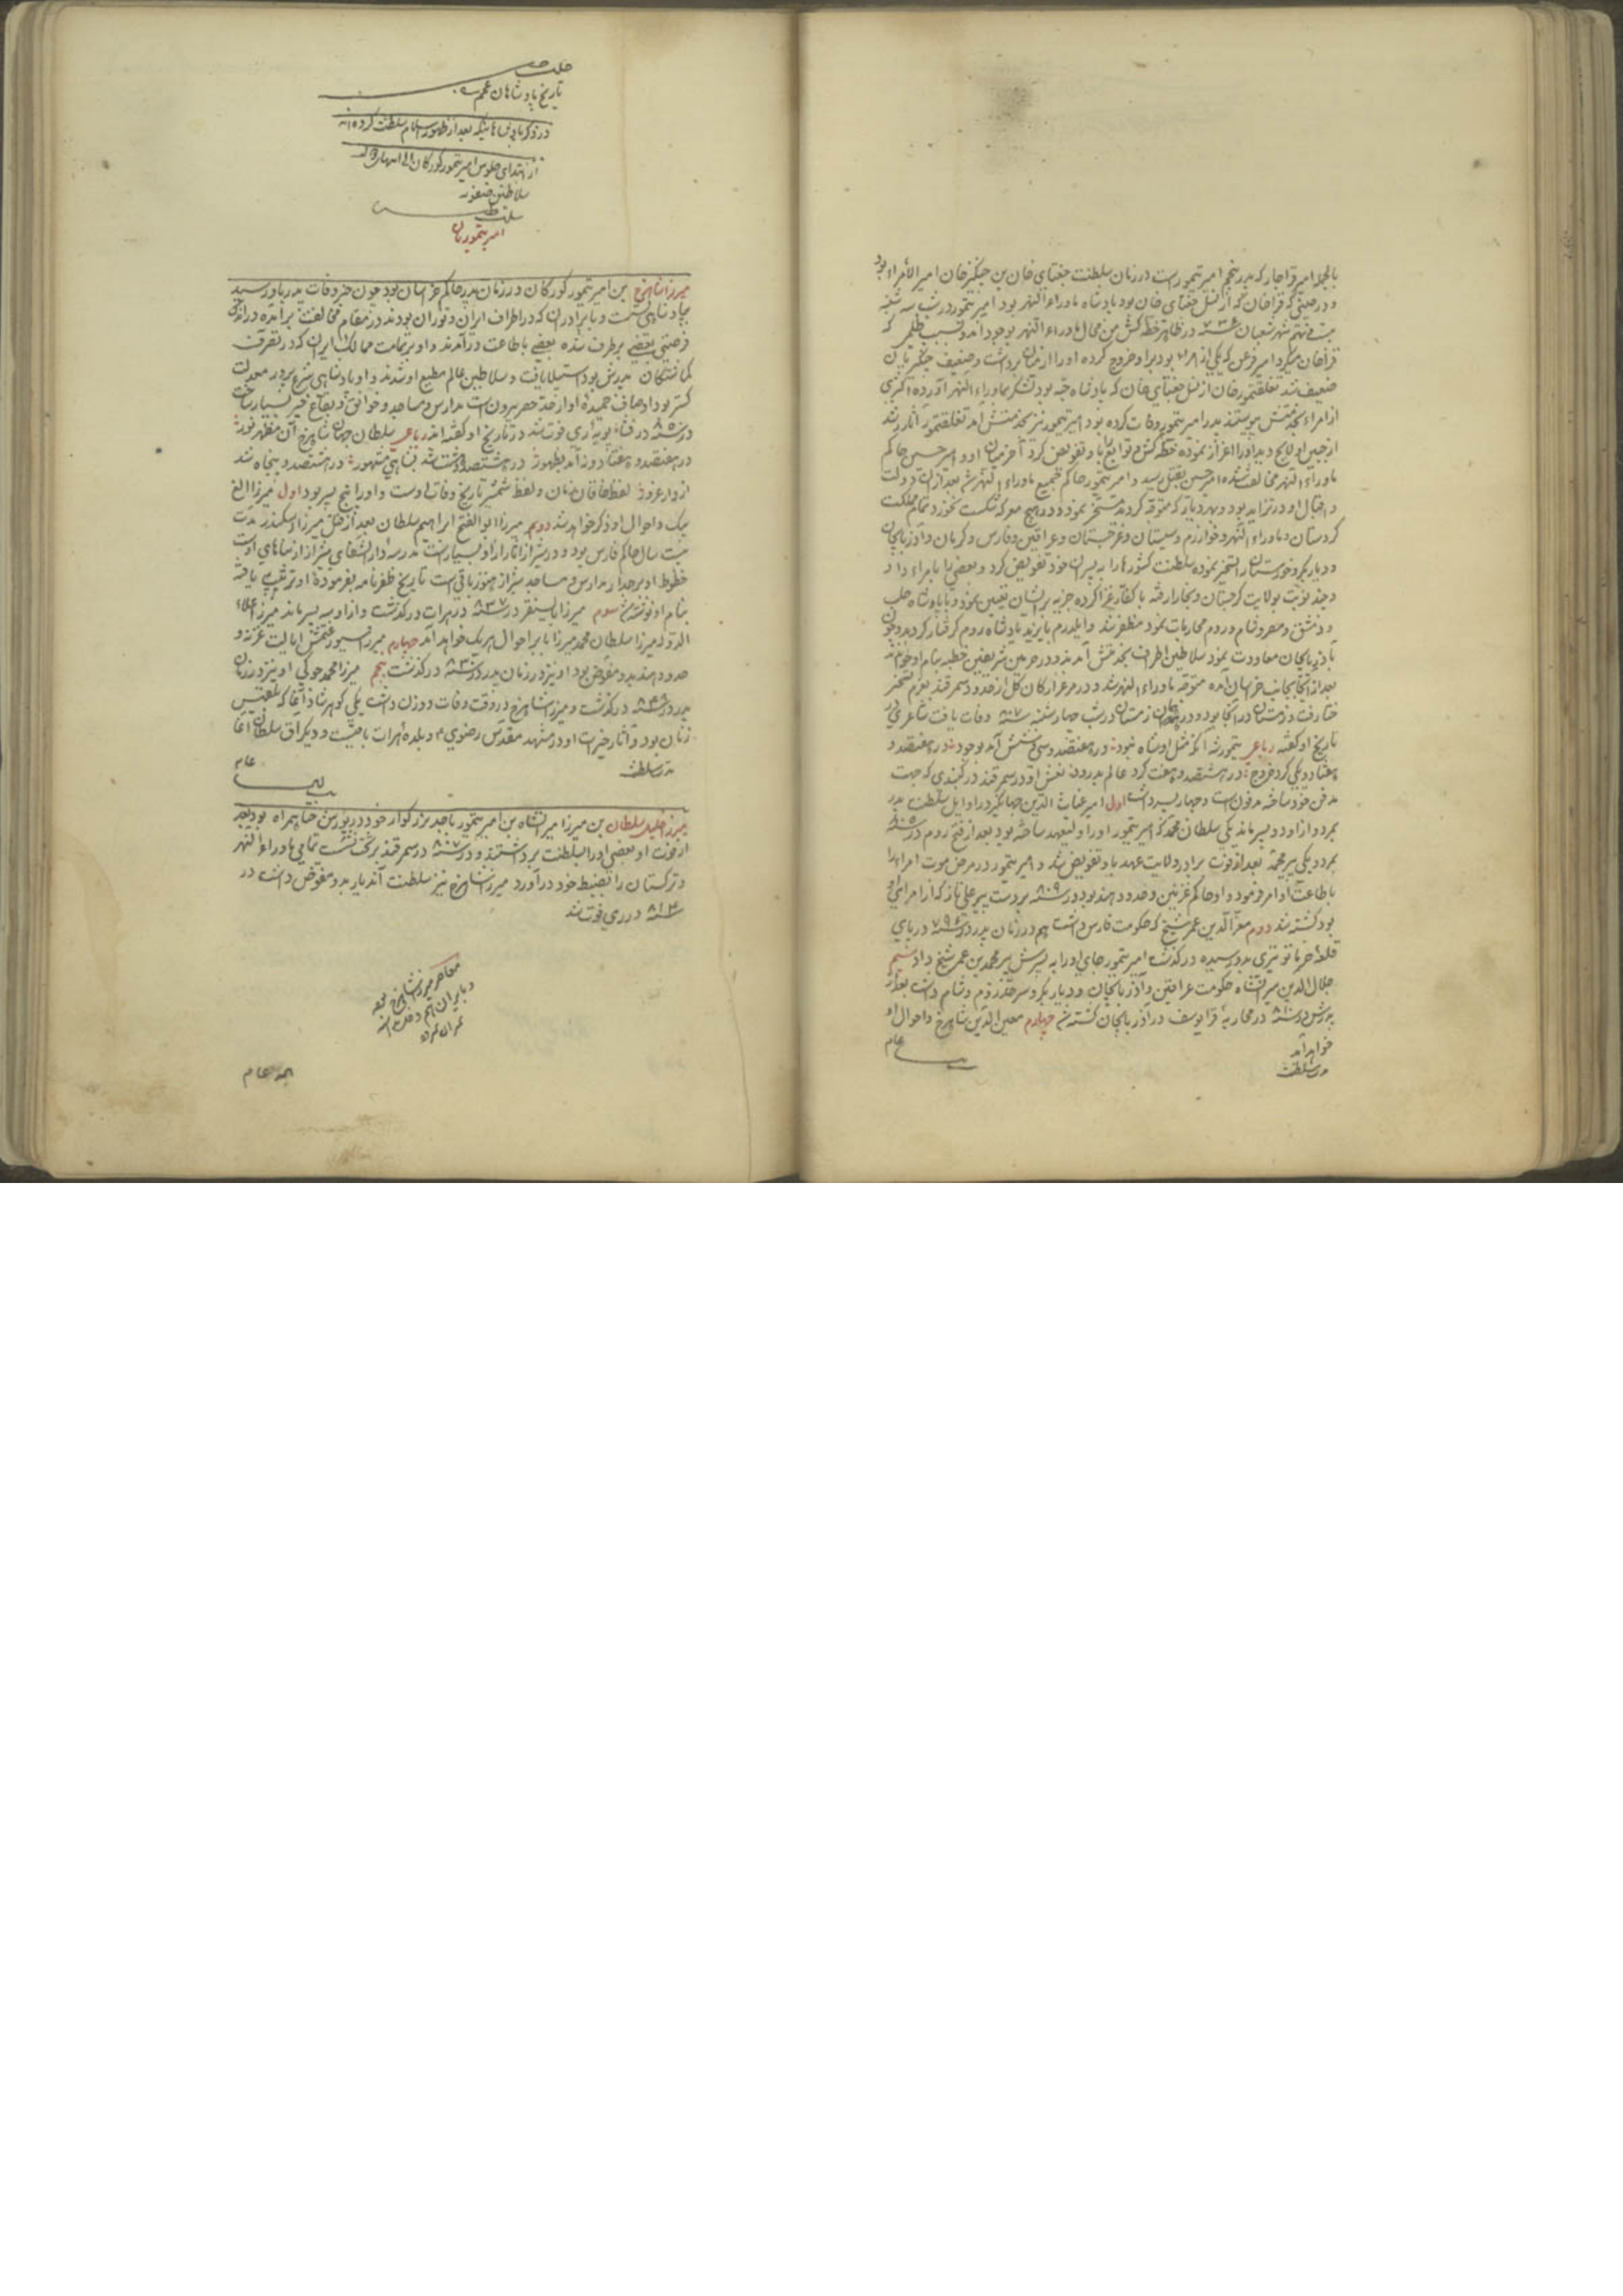 بالجمله امیر قراجار که پدر پنجم امیر تیمور است در زمان سلطنت جغتای خان بن چنگیز خان امیر الامراء بود
و در حینی که قزاخان که از نسل جغتای خان بود پادشاه ماوراء النهر بود امیر تیمور در شب سه شنبه
بیست و پنجم شهر شعبان ۷۳۶ در ظاهر خطه کش من محال ماوراء النهر بوجود آمد و بسبب ظلمی که
قزاخان میکرد امیر قزغن که یکی از امراء بود بر او خروج کرده او را از میان برداشت و ضعیف چنگیزیان
ضعیف شد تغلقتمور خان از نسل جغتای خان که پادشاه جته بود لشکر بماوراء النهر آورده اکثری
از امراء بخدمتش پیوستند پدر امیر تیمور وفات کرده بود امیر تیمور نیز بخدمتش آمد تغلقتمور آثار رشد
از جبین او لایح دید او را اعزاز نموده خطه کش و توابع را باو تفویض کرد آخر میان او و امیر حسین حاکم
ماوراء النهر مخالفت شده امیر حسین بقتل رسید و امیر تیمور حاکم جمیع ماوراء النهر شد بعد از آن دولت
و اقبال او در تزاید بود و بهر دیار که متوجه گردید مسخر نمود و در هیچ معرکه شکست نخورد و تمام مملکت
کردستان و ماوراء النهر و خوارزم و سیستان و غرجستان و عراقین و فارس و کرمان و آذربایجان
و دیاربکر و خوزستان را تسخیر نموده سلطنت کشورها را به پسران خود تفویض کرد و بعضی را بامراء داد
و چند نوبت بولایت گرجستان و بخارا رفته با کفار غزا کرده جزیه بر ایشان تعیین نمود و با پادشاه حلب
و دمشق و مصر و شام و روم محاربات نمود مظفر شد و ایلدرم بایزید پادشاه روم گرفتار گردید و چون
بآذربایجان معاودت نمود سلاطین اطراف بخدمتش آمدند و در حرمین شریفین خطبه بنام او خواندند
بعد از آنجا بجانب خراسان آمده متوجه ماوراء النهر شد و در مرغزار کان گل از حدود سمرقند بعزم تسخیر
ختا رفت و زمستان در آنجا بود و در زمستان در شب چهارشنبه ۸۰۷ وفات یافت شاعری در
تاریخ او گفته رباعی تیمور شه آنکه مثل او شاه نبود در هفتصد و سی و شش آمد بوجود در هفتصد و
هفتاد و یکی کرد خروج در هشتصد و هفت کرد عالم بدرود نعش او در سمرقند در گنبدی که جهت
مدفن خود ساخته مدفون است و چهار پسر داشت اول امیر غیاث الدین جهانگیر در اوایل سلطنت پدر
بمرد و از او دو پسر ماند یکی سلطان محمد که امیر تیمور او را ولیعهد ساخته بود بعد از فتح روم در ۸۰۵
بمرد و یکی پیر محمد بعد از فوت برادر ولایت عهد باو تفویض شد و امیر تیمور در مرض موت امراء را
باطاعت او امر فرمود و او حاکم غزنین و حدود هند بود در ۸۰۹ بر دست پیر علی تاز که از امرای او
بود کشته شد دوم معز الدین عمر شیخ که حکومت فارس داشت هم در زمان پدر در ۷۹۶ در پای
قلعه خرماتو تیری بدو رسیده درگذشت امیر تیمور جای او را به پسرش پیر محمد بن عمر شیخ داد سیم
جلال الدین میرانشاه حکومت عراقین و آذربایجان و دیاربکر و سرحد روم و شام داشت بعد از
پدرش در ۸۱۰ در محاربه قرا یوسف در آذربایجان کشته شد چهارم معین الدین شاهرخ و احوال او
خواهد آمد
مدت سلطنت
عام

تاریخ پادشاهان عجم
در ذکر پادشاهانیکه بعد از ظهور اسلام سلطنت کرده اند
از ابتدای جلوس امیر تیمور گورکان الی انتهای دولت
سلاطین صفویه
سلسله
امیر تیموریان
میرزا شاهرخ بن امیر تیمور گورکان در زمان پدر حاکم خراسان بود چون خبر وفات پدر باو رسید
بپادشاهی نشست و با برادران که در اطراف ایران و توران بودند در مقام مخالفت برآمده در اندک
فرصتی بعضی برطرف شده بعضی باطاعت درآمدند و او بر تمامت ممالک ایران که در تصرف
گماشتگان پدرش بود استیلا یافت و سلاطین عالم مطیع او شدند و او پادشاهی شرع پرور معدلت
گستر بود اوصاف حمیده او از حد حصر بیرون است مدارس و مساجد و خوانق و بقاع خیر بسیار ساخت
در ۸۵۰ در فشاویه ری فوت شد در تاریخ او گفته اند رباعی سلطان جهان شاهرخ آن مظهر نور
در هفتصد و هفتاد و نه آمد بظهور در هشتصد و هشت شد بشاهی مشهور در هشتصد و پنجاه شد
از دار غرور لفظ خاقان زمان و لفظ شمشیر تاریخ وفات اوست و او را پنج پسر بود اول میرزا الغ
بیک و احوال او ذکر خواهد شد دویم میرزا ابوالفتح ابراهیم سلطان بعد از قتل میرزا اسکندر مدت
بیست سال حاکم فارس بود و در شیراز آثار از او بسیار است مدرسه دارالشفای شیراز از بناهای اوست
خطوط او بر جدار مدارس و مساجد شیراز هنوز باقی است تاریخ ظفرنامه بفرموده او ترتیب یافته
بنام او نوشته شد سوم میرزا بایسنقر در ۸۳۷ در هرات درگذشت و از او سه پسر ماند میرزا علاء
الدوله میرزا سلطان محمد میرزا بابر احوال هریک خواهد آمد چهارم میرزا سیورغتمش ایالت غزنه و
حدود هند بدو مفوض بود او نیز در زمان پدر در ۸۳۰ درگذشت پنجم میرزا محمد جوکی او نیز در زمان
پدر در ۸۴۸ درگذشت و میرزا شاهرخ در وقت وفات دو زن داشت یکی گوهرشاد آغا که بلقیس
زنان بود و آثار خیرات او در مشهد مقدس رضوی و بلده هرات باقیست و دیگر آق سلطان آغا
مدت سلطنت
عام
میرزا خلیل سلطان بن میرزا میرانشاه بن امیر تیمور با جد بزرگوار خود در یورش ختا همراه بود بعد
از فوت او بعضی او را بسلطنت برداشتند و در ۸۰۷ در سمرقند بر تخت نشست تمامی ماوراء النهر
و ترکستان را بضبط خود درآورد میرزا شاهرخ نیز سلطنت آن دیار بدو مفوض داشت در
۸۱۴ در ری فوت شد
معاصر میرزا شاهرخ بود
عام